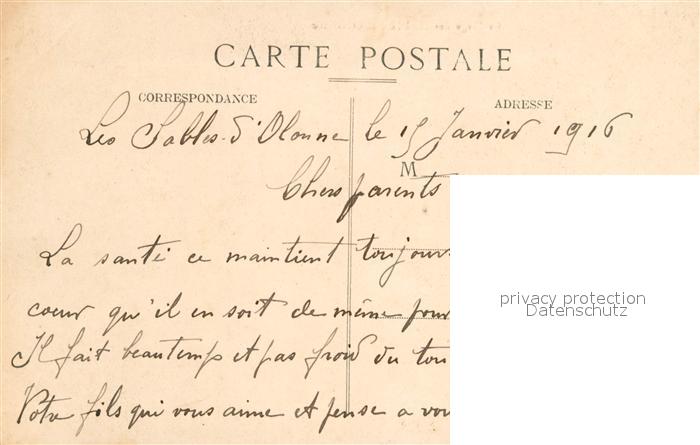 CARTE POSTALE
CORRESPONDANCE
ADRESSE
Les Sables-d'Olonne le 15 Janvier 1916
M
Chers parents
La santé ce maintient toujours
coeur qu'il en soit de même pour
Il fait beau temps et pas froid du tou
Votre fils qui vous aime et pense a vou
privacy protection
Datenschutz